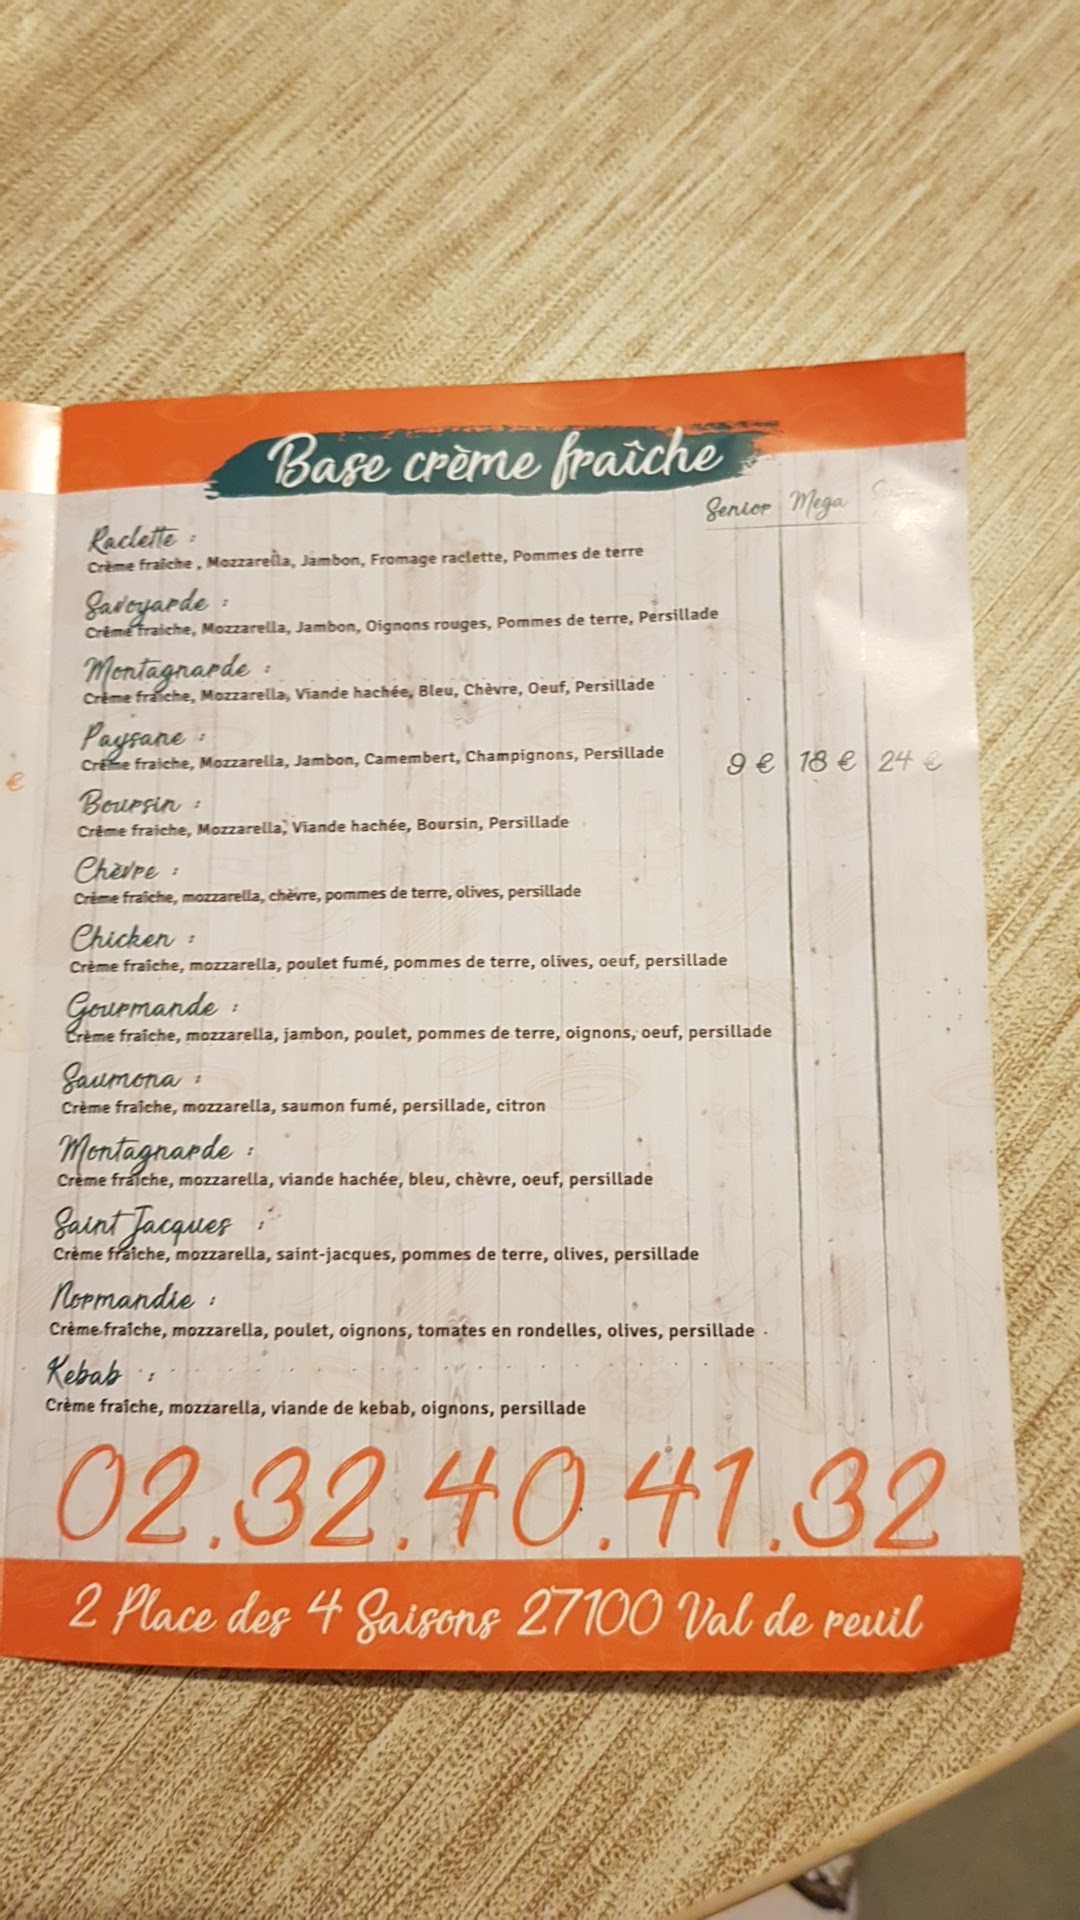 Base crème fraîche
Senior Mega
Raclette :
Crème fraîche , Mozzarella, Jambon, Fromage raclette, Pommes de terre
Savoyarde :
Crème fraîche, Mozzarella, Jambon, Oignons rouges, Pommes de terre, Persillade
Montagnarde :
Crème fraîche, Mozzarella, Viande hachée, Bleu, Chèvre, Oeuf, Persillade
Paysane :
Crème fraiche, Mozzarella, Jambon, Camembert, Champignons, Persillade
9 € 18 € 24 €
€
Boursin :
Crème fraiche, Mozzarella, Viande hachée, Boursin, Persillade
Chèvre :
Crème fraîche, mozzarella, chèvre, pommes de terre, olives, persillade
Chicken :
Crème fraîche, mozzarella, poulet fumé, pommes de terre, olives, oeuf, persillade
Gourmande :
Crème fraîche, mozzarella, jambon, poulet, pommes de terre, oignons, oeuf, persillade
Saumona :
Crème fraîche, mozzarella, saumon fumé, persillade, citron
Montagnarde :
Crème fraîche, mozzarella, viande hachée, bleu, chèvre, oeuf, persillade
Saint Jacques :
Crème fraîche, mozzarella, saint-jacques, pommes de terre, olives, persillade
Normandie :
Crème fraîche, mozzarella, poulet, oignons, tomates en rondelles, olives, persillade
Kebab :
Crème fraîche, mozzarella, viande de kebab, oignons, persillade
02.32.40.41.32
2 Place des 4 Saisons 27100 Val de reuil